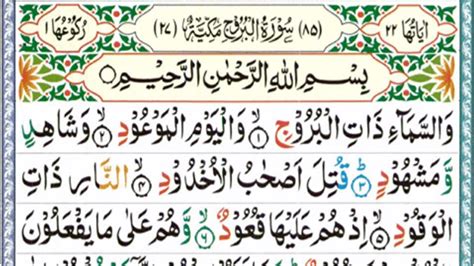 اٰیَاتُهَا ٢٢ (٨٥) سُوْرَةُ الْبُرُوْجِ مَكِّيَّةٌ (٢٧) رُكُوْعُهَا ١
بِسْمِ اللّٰهِ الرَّحْمٰنِ الرَّحِيْمِ
وَالسَّمَآءِ ذَاتِ الْبُرُوْجِ ۙ﴿١﴾ وَالْيَوْمِ الْمَوْعُوْدِ ۙ﴿٢﴾ وَشَاهِدٍ
وَّمَشْهُوْدٍ ؕ﴿٣﴾ قُتِلَ اَصْحٰبُ الْاُخْدُوْدِ ۙ﴿٤﴾ النَّارِ ذَاتِ
الْوَقُوْدِ ۙ﴿٥﴾ اِذْ هُمْ عَلَيْهَا قُعُوْدٌ ۙ﴿٦﴾ وَّهُمْ عَلٰى مَا يَفْعَلُوْنَ